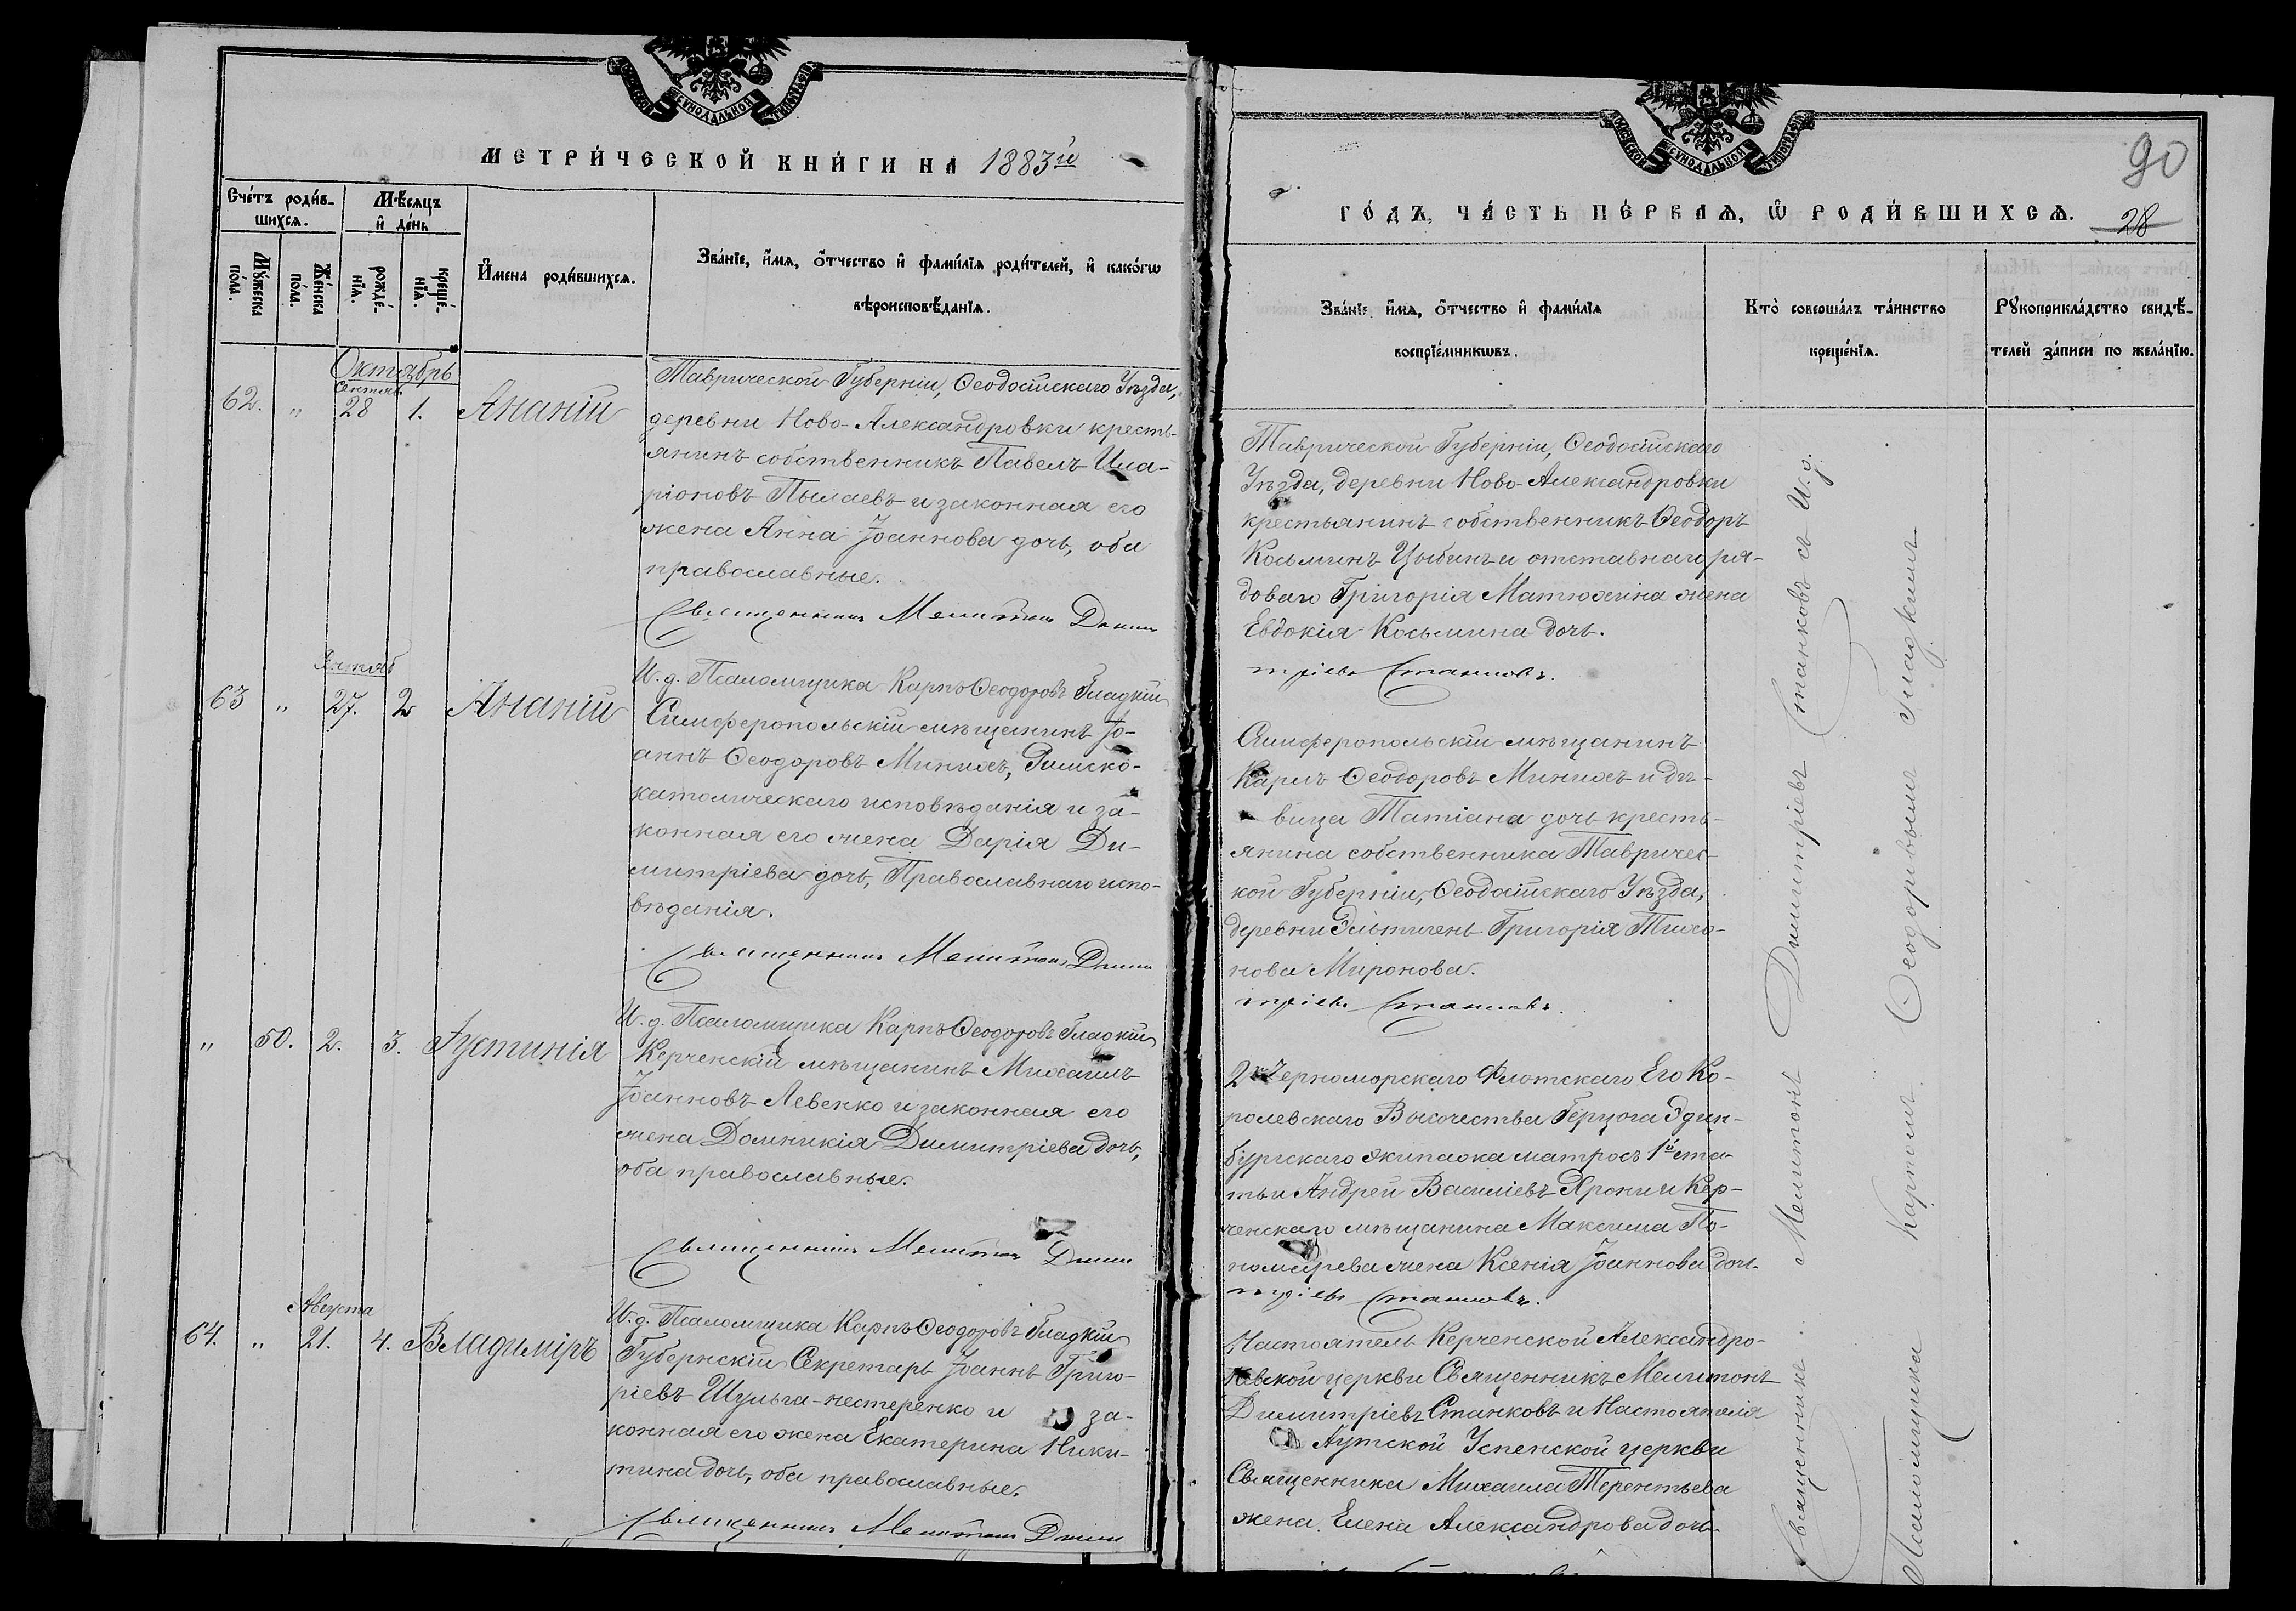 МЕТРИ́ЧЕСКОЙ КНИ́ГИ НА 1883й
Сче́тъ роди́в-
шихся.
Мѣ́сяцъ
и҆ де́нь
Мꙋ́жеска
по́ла.
Же́нска
по́ла.
рожде́-
нїѧ.
креще́-
нїѧ.
И҆́мена роди́вшихсѧ.
Зва́нїе, и҆́мѧ, ѻ҆́тчество и҆ фами́лїѧ роди́телей, и҆ како́гѡ
вѣроисповѣ́данїѧ.
Октябрь
Сентяб.
62. „ 28 1. Ананій
Таврической Губерніи, Ѳеодосійскаго Уѣзда,
деревни Ново-Александровки кресть-
янинъ собственникъ Павелъ Ила-
ріоновъ Пылаевъ и законная его
жена Анна Іоаннова дочь, оба
православные.
Священникъ Мелитонъ Дими
Сентяб
63 „ 27. 2 Ананій
И. д. Псаломщика Карпъ Ѳеодоровъ Гладкій
Симферопольскій мѣщанинъ Іо-
аннъ Ѳеодоровъ Минихъ, Римско-
католическаго исповѣданія и за-
конная его жена Дарія Ди-
митріева дочь, Православнаго испо-
вѣданія.
Священникъ Мелитонъ Дими
„ 50. 2. 3. Іустинія
И. д. Псаломщика Карпъ Ѳеодоровъ Гладкій
Керченскій мѣщанинъ Михаилъ
Іоанновъ Левенко и законная его
жена Домникія Димитріева дочь,
оба православные.
Священникъ Мелитонъ Дими
Августа
64. „ 21. 4. Владиміръ
И. д. Псаломщика Карпъ Ѳеодоровъ Гладкій
Губернскій Секретарь Іоаннъ Григо-
ріевъ Шульга-нестеренко и за-
конная его жена Екатерина Ники-
тина дочь, оба православные.
Священникъ Мелитонъ Дими
90
ГО́ДЪ, ЧА́СТЬ ПЕ́РВАѦ, Ѡ҆ РОДИ́ВШИХСѦ. 28
Зва́нїе и҆́мѧ, ѻ҆́тчество и҆ фами́лїѧ
воспрїе́мникѡвъ.
Кто̀ соверша́лъ та́инство
креще́нїѧ.
Рꙋкоприкла́дство свидѣ́-
телей за́писи по жела́нїю.
Таврической Губерніи, Ѳеодосійскаго
Уѣзда, деревни Ново-Александровки
крестьянинъ собственникъ Ѳеодоръ
Косьминъ Цыбинъ и отставнаго ря-
доваго Григорія Матюхина жена
Евдокія Косьмина дочь.
тріевъ Станковъ.
Симферопольскій мѣщанинъ
Карлъ Ѳеодоровъ Минихъ и дѣ-
вица Татіана дочь кресть-
янина собственника Тавричес-
кой Губерніи, Ѳеодосійскаго Уѣзда,
деревни Эльтигень Григорія Тихо-
нова Миронова.
тріевъ Станковъ.
2го Черноморскаго Флотскаго Его Ко-
ролевскаго Высочества Герцога Эдин-
бургскаго экипажа матросъ 1й ста-
тьи Андрей Василіевъ Хрони и Кер-
ченскаго мѣщанина Максима По-
номарева жена Ксенія Іоаннова дочь.
тріевъ Станковъ.
Настоятель Керченской Александро-
Невской церкви Священникъ Мелитонъ
Димитріевъ Станковъ и Настоятеля
Аутской Успенской церкви
Священника Михаила Терентьева
жена Елена Александрова дочь.
Священникъ Мелитонъ Димитріевъ Станковъ съ И. д.
Псаломщика Карпомъ Ѳеодоровымъ Гладкимъ